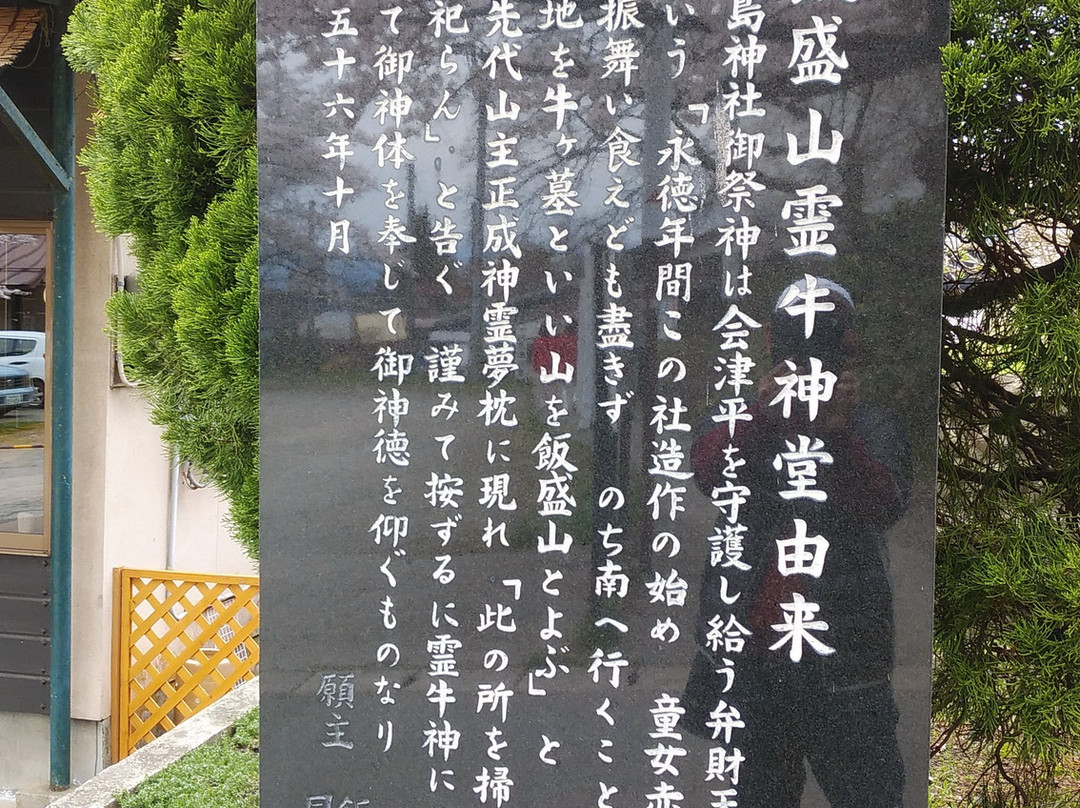 盛山霊牛神堂由来
島神社御祭神は会津平を守護し給う弁財天
いう「永徳年間この社造作の始め 童女赤
振舞い食えども盡きず のち南へ行くこと
地を牛ヶ墓といい山を飯盛山とよぶ」と
先代山主正成神霊夢枕に現れ「此の所を掃
祀らん」と告ぐ 謹みて按ずるに霊牛神に
て御神体を奉じて御神徳を仰ぐものなり
五十六年十月
願主